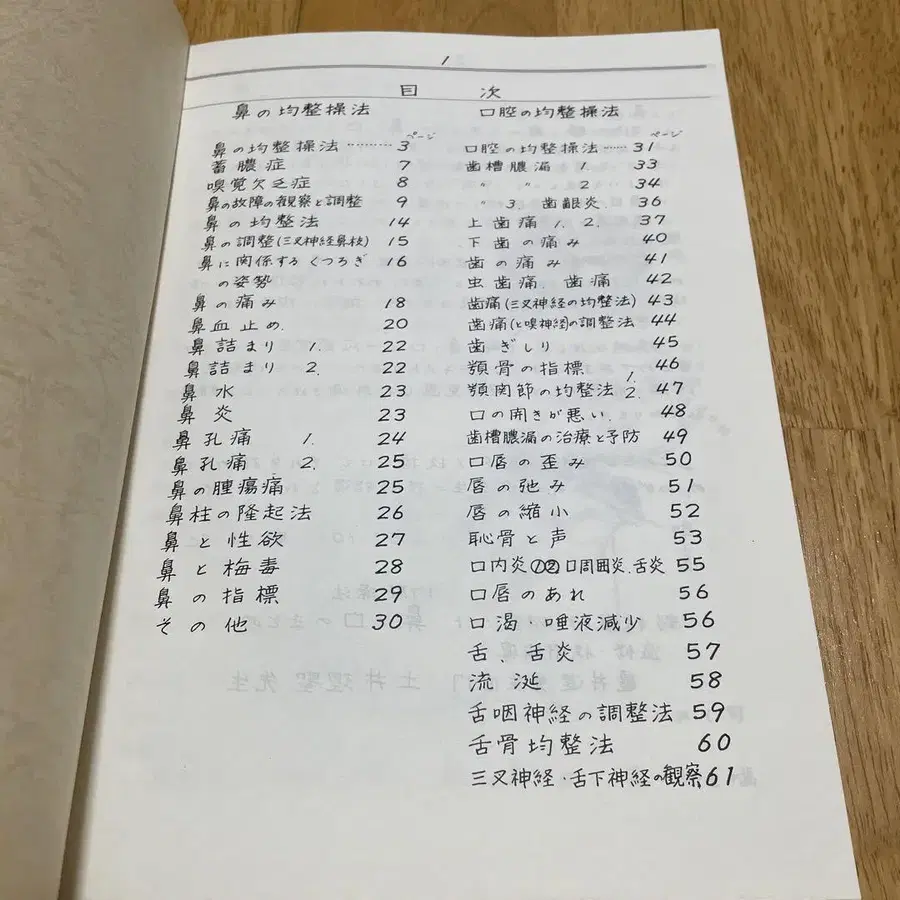 1
目 次
鼻の均整操法
ページ
鼻の均整操法………3
蓄膿症 7
嗅覚欠乏症 8
鼻の故障の観察と調整 9
鼻の均整法 14
鼻の調整(三叉神経鼻枝) 15
鼻に関係するくつろぎ 16
の姿勢
鼻の痛み 18
鼻血止め. 20
鼻詰まり 1. 22
鼻詰まり 2. 22
鼻水 23
鼻炎 23
鼻孔痛 1. 24
鼻孔痛 2. 25
鼻の腫瘍痛 25
鼻柱の隆起法 26
鼻と性欲 27
鼻と梅毒 28
鼻の指標 29
その他 30
口腔の均整操法
ページ
口腔の均整操法……31
歯槽膿漏 1. 33
〃 〃 2 34
〃 3. 歯齦炎. 36
上歯痛 1. 2. 37
下歯の痛み 40
歯の痛み 41
虫歯痛、歯痛 42
歯痛(三叉神経の均整法) 43
歯痛(と嗅神経)の調整法 44
歯ぎしり 45
顎骨の指標 46
顎関節の均整法 1. 2. 47
口の開きが悪い. 48
歯槽膿漏の治療と予防 49
口唇の歪み 50
唇の弛み 51
唇の縮小 52
恥骨と声 53
口内炎①② 口周囲炎、舌炎 55
口唇のあれ 56
口渇・唾液減少 56
舌、舌炎 57
流涎 58
舌咽神経の調整法 59
舌骨均整法 60
三叉神経・舌下神経の観察 61